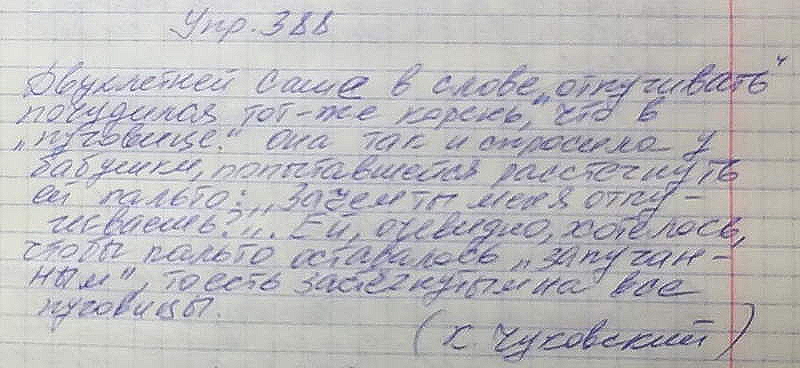 Упр. 388
Двухлетней Саше в слове „отпугивать"
почудился тот-же корень, что в
„пуговице". Она так и спросила у
бабушки, попытавшейся расстегнуть
ей пальто: „Зачем ты меня отпу-
гиваешь?". Ей, очевидно, хотелось,
чтобы пальто оставалось „запуган-
ным", то есть застёгнутым на все
пуговицы.
(К. Чуковский)